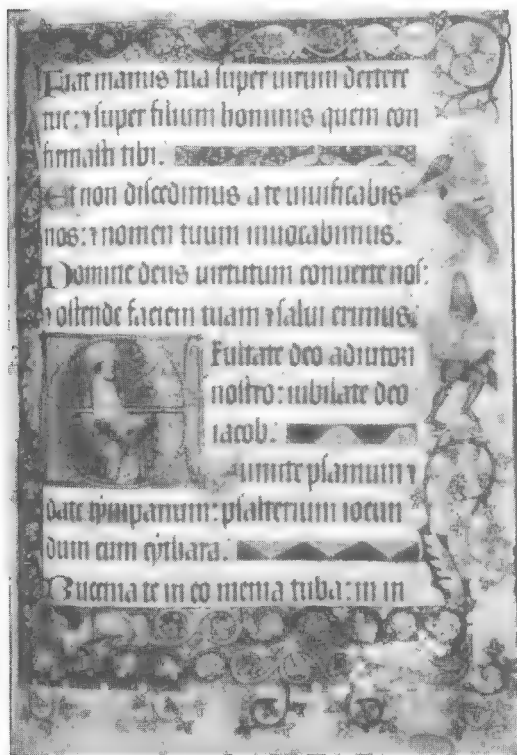 Fiat manus tua super uirum dextere
tue: ⁊ super filium hominis quem con
firmasti tibi.
Et non discedimus a te uiuificabis
nos: ⁊ nomen tuum inuocabimus.
Domine deus uirtutum conuerte nos:
⁊ ostende faciem tuam ⁊ salui erimus.
Exultate deo adiutori
nostro: iubilate deo
iacob.
Sumite psalmum ⁊
date tympanum: psalterium iocun
dum cum cythara.
Buccinate in eo menia tuba: in in